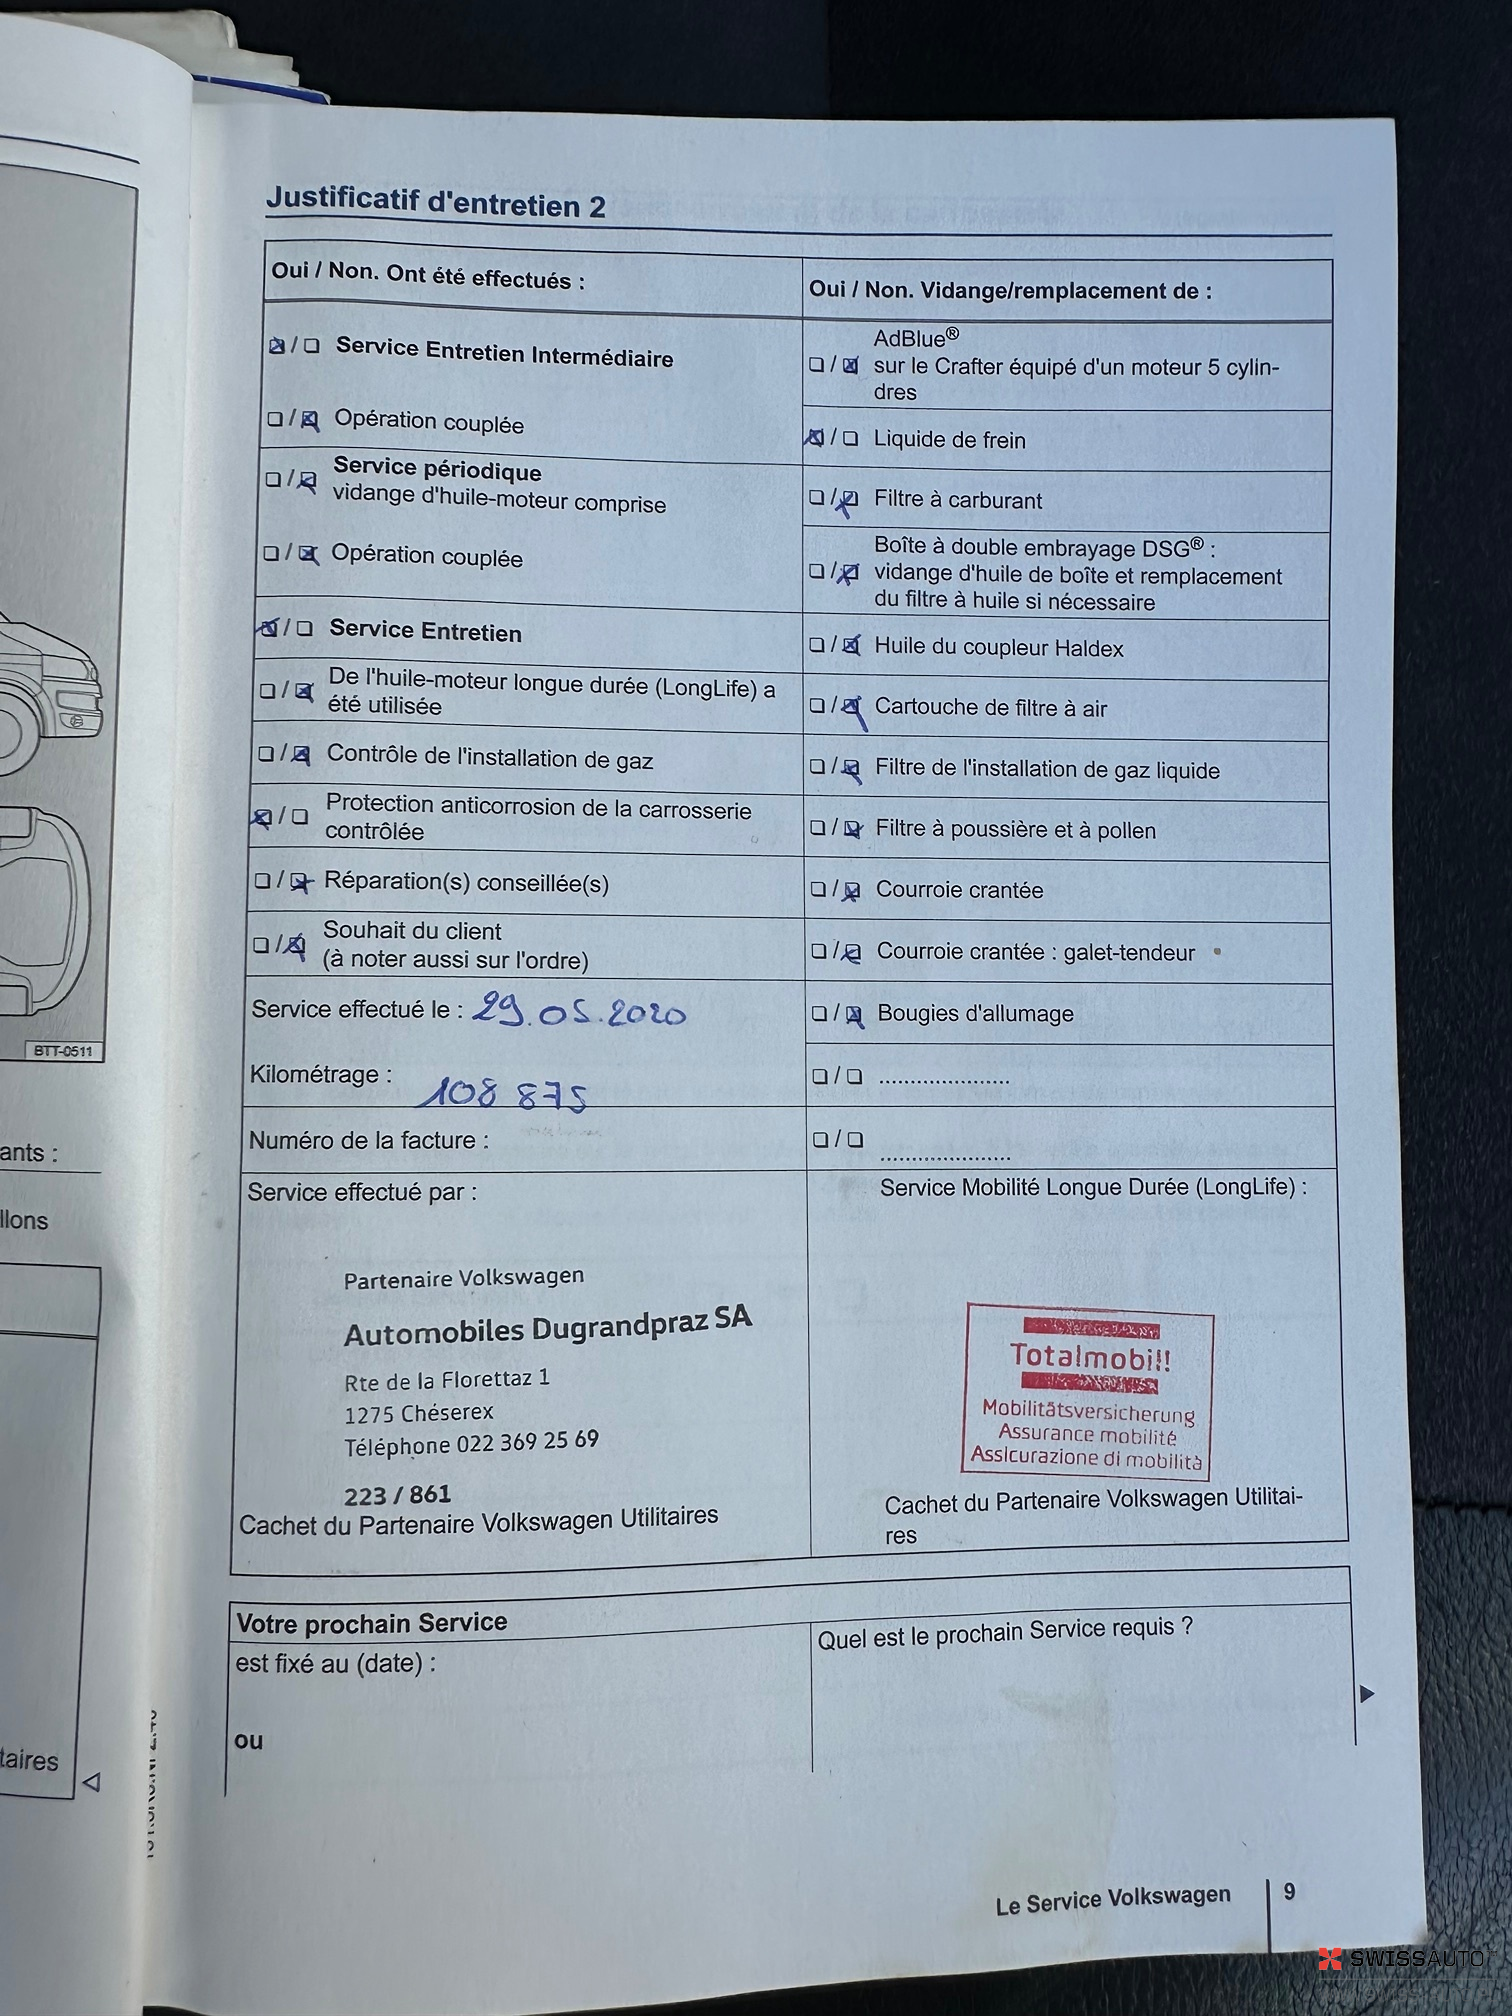 Justificatif d'entretien 2
Oui / Non. Ont été effectués :
☒ / ☐ Service Entretien Intermédiaire
☐ / ☒ Opération couplée
☐ / ☒ Service périodique
vidange d'huile-moteur comprise
☐ / ☒ Opération couplée
☒ / ☐ Service Entretien
☐ / ☒ De l'huile-moteur longue durée (LongLife) a
été utilisée
☐ / ☒ Contrôle de l'installation de gaz
☒ / ☐ Protection anticorrosion de la carrosserie
contrôlée
☐ / ☒ Réparation(s) conseillée(s)
☐ / ☒ Souhait du client
(à noter aussi sur l'ordre)
Service effectué le : 29.05.2020
Kilométrage : 108 875
Numéro de la facture :
Service effectué par :
Partenaire Volkswagen
Automobiles Dugrandpraz SA
Rte de la Florettaz 1
1275 Chéserex
Téléphone 022 369 25 69
223 / 861
Cachet du Partenaire Volkswagen Utilitaires
Oui / Non. Vidange/remplacement de :
AdBlue®
☐ / ☒ sur le Crafter équipé d'un moteur 5 cylin-
dres
☒ / ☐ Liquide de frein
☐ / ☒ Filtre à carburant
Boîte à double embrayage DSG® :
☐ / ☒ vidange d'huile de boîte et remplacement
du filtre à huile si nécessaire
☐ / ☒ Huile du coupleur Haldex
☐ / ☒ Cartouche de filtre à air
☐ / ☒ Filtre de l'installation de gaz liquide
☐ / ☒ Filtre à poussière et à pollen
☐ / ☒ Courroie crantée
☐ / ☒ Courroie crantée : galet-tendeur
☐ / ☒ Bougies d'allumage
☐ / ☐ ......................
☐ / ☐ ......................
Service Mobilité Longue Durée (LongLife) :
Totalmobil!
Mobilitätsversicherung
Assurance mobilité
Assicurazione di mobilità
Cachet du Partenaire Volkswagen Utilitai-
res
Votre prochain Service
est fixé au (date) :
ou
Quel est le prochain Service requis ?
Le Service Volkswagen 9
BTT-0511
ants :
llons
taires
SWISSAUTO